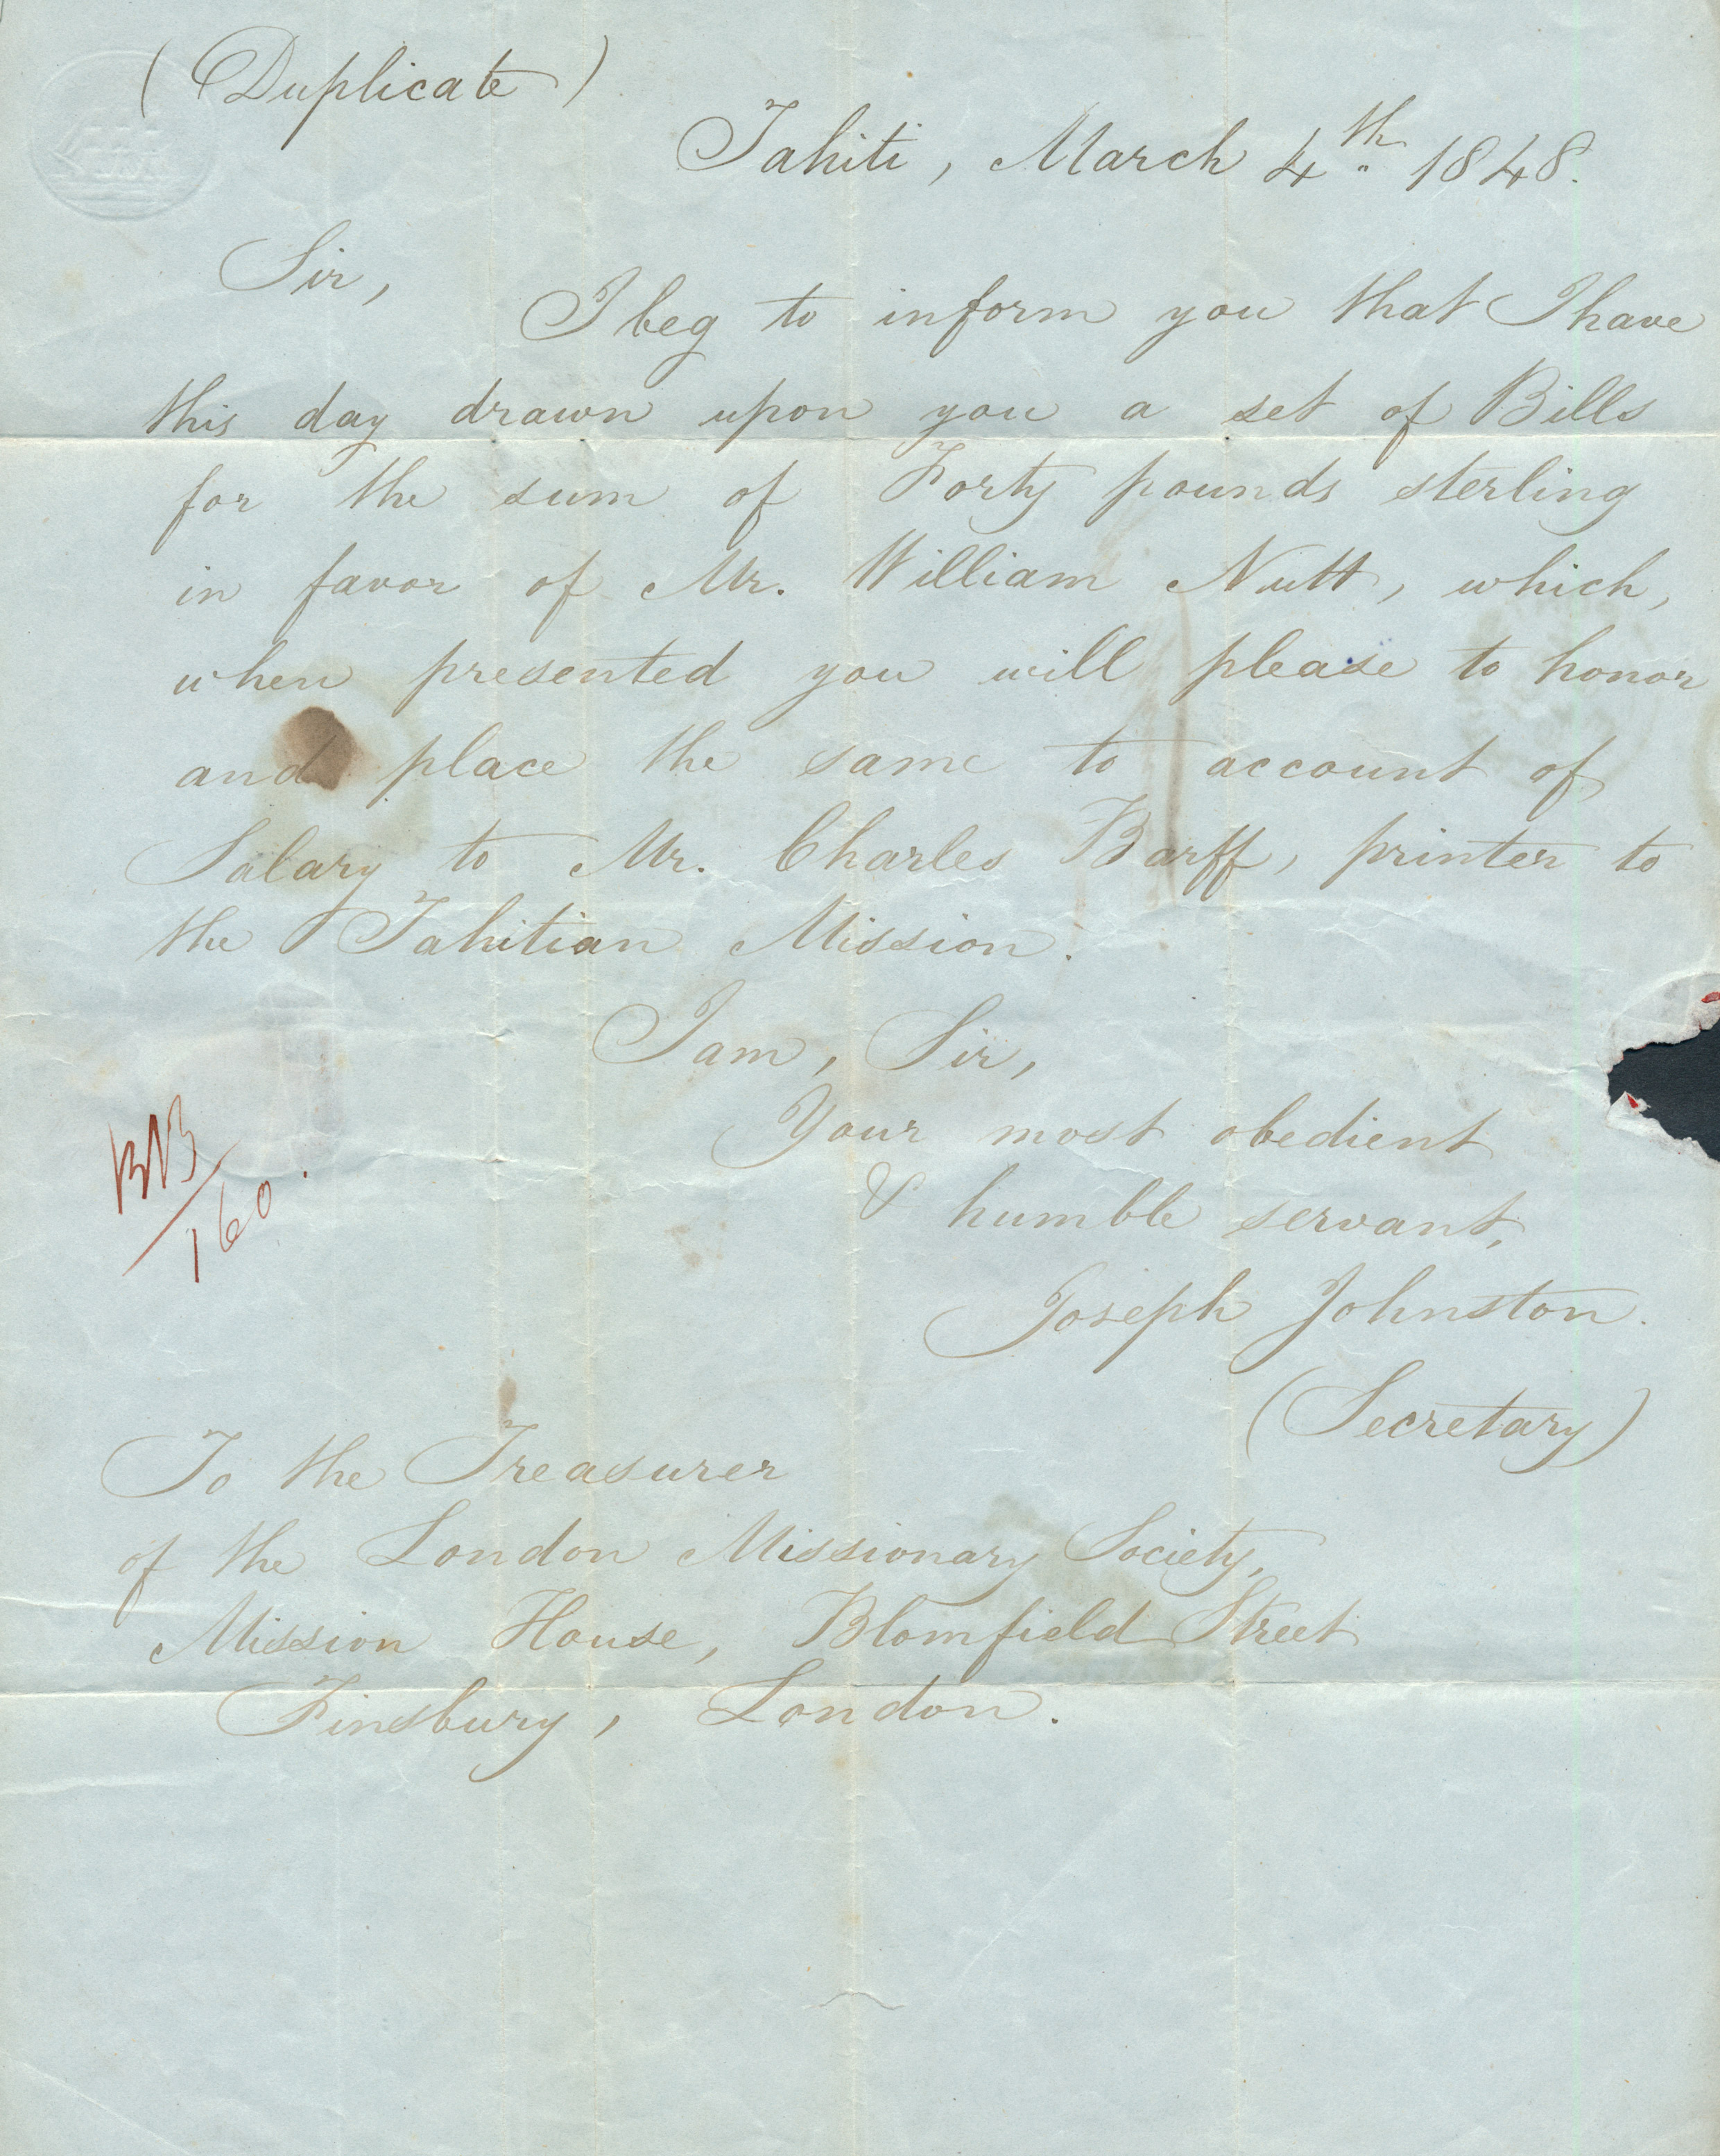 (Duplicate)
Tahiti, March 4th. 1848.
Sir,
I beg to inform you that I have
this day drawn upon you a set of Bills
for the sum of Forty pounds sterling
in favor of Mr. William Nutt, which,
when presented you will please to honor
and place the same to account of
Salary to Mr. Charles Barff, printer to
the Tahitian Mission.
I am, Sir,
Your most obedient
& humble servant,
Joseph Johnston.
(Secretary)
160.
To the Treasurer
of the London Missionary Society,
Mission House, Blomfield Street
Finsbury, London.